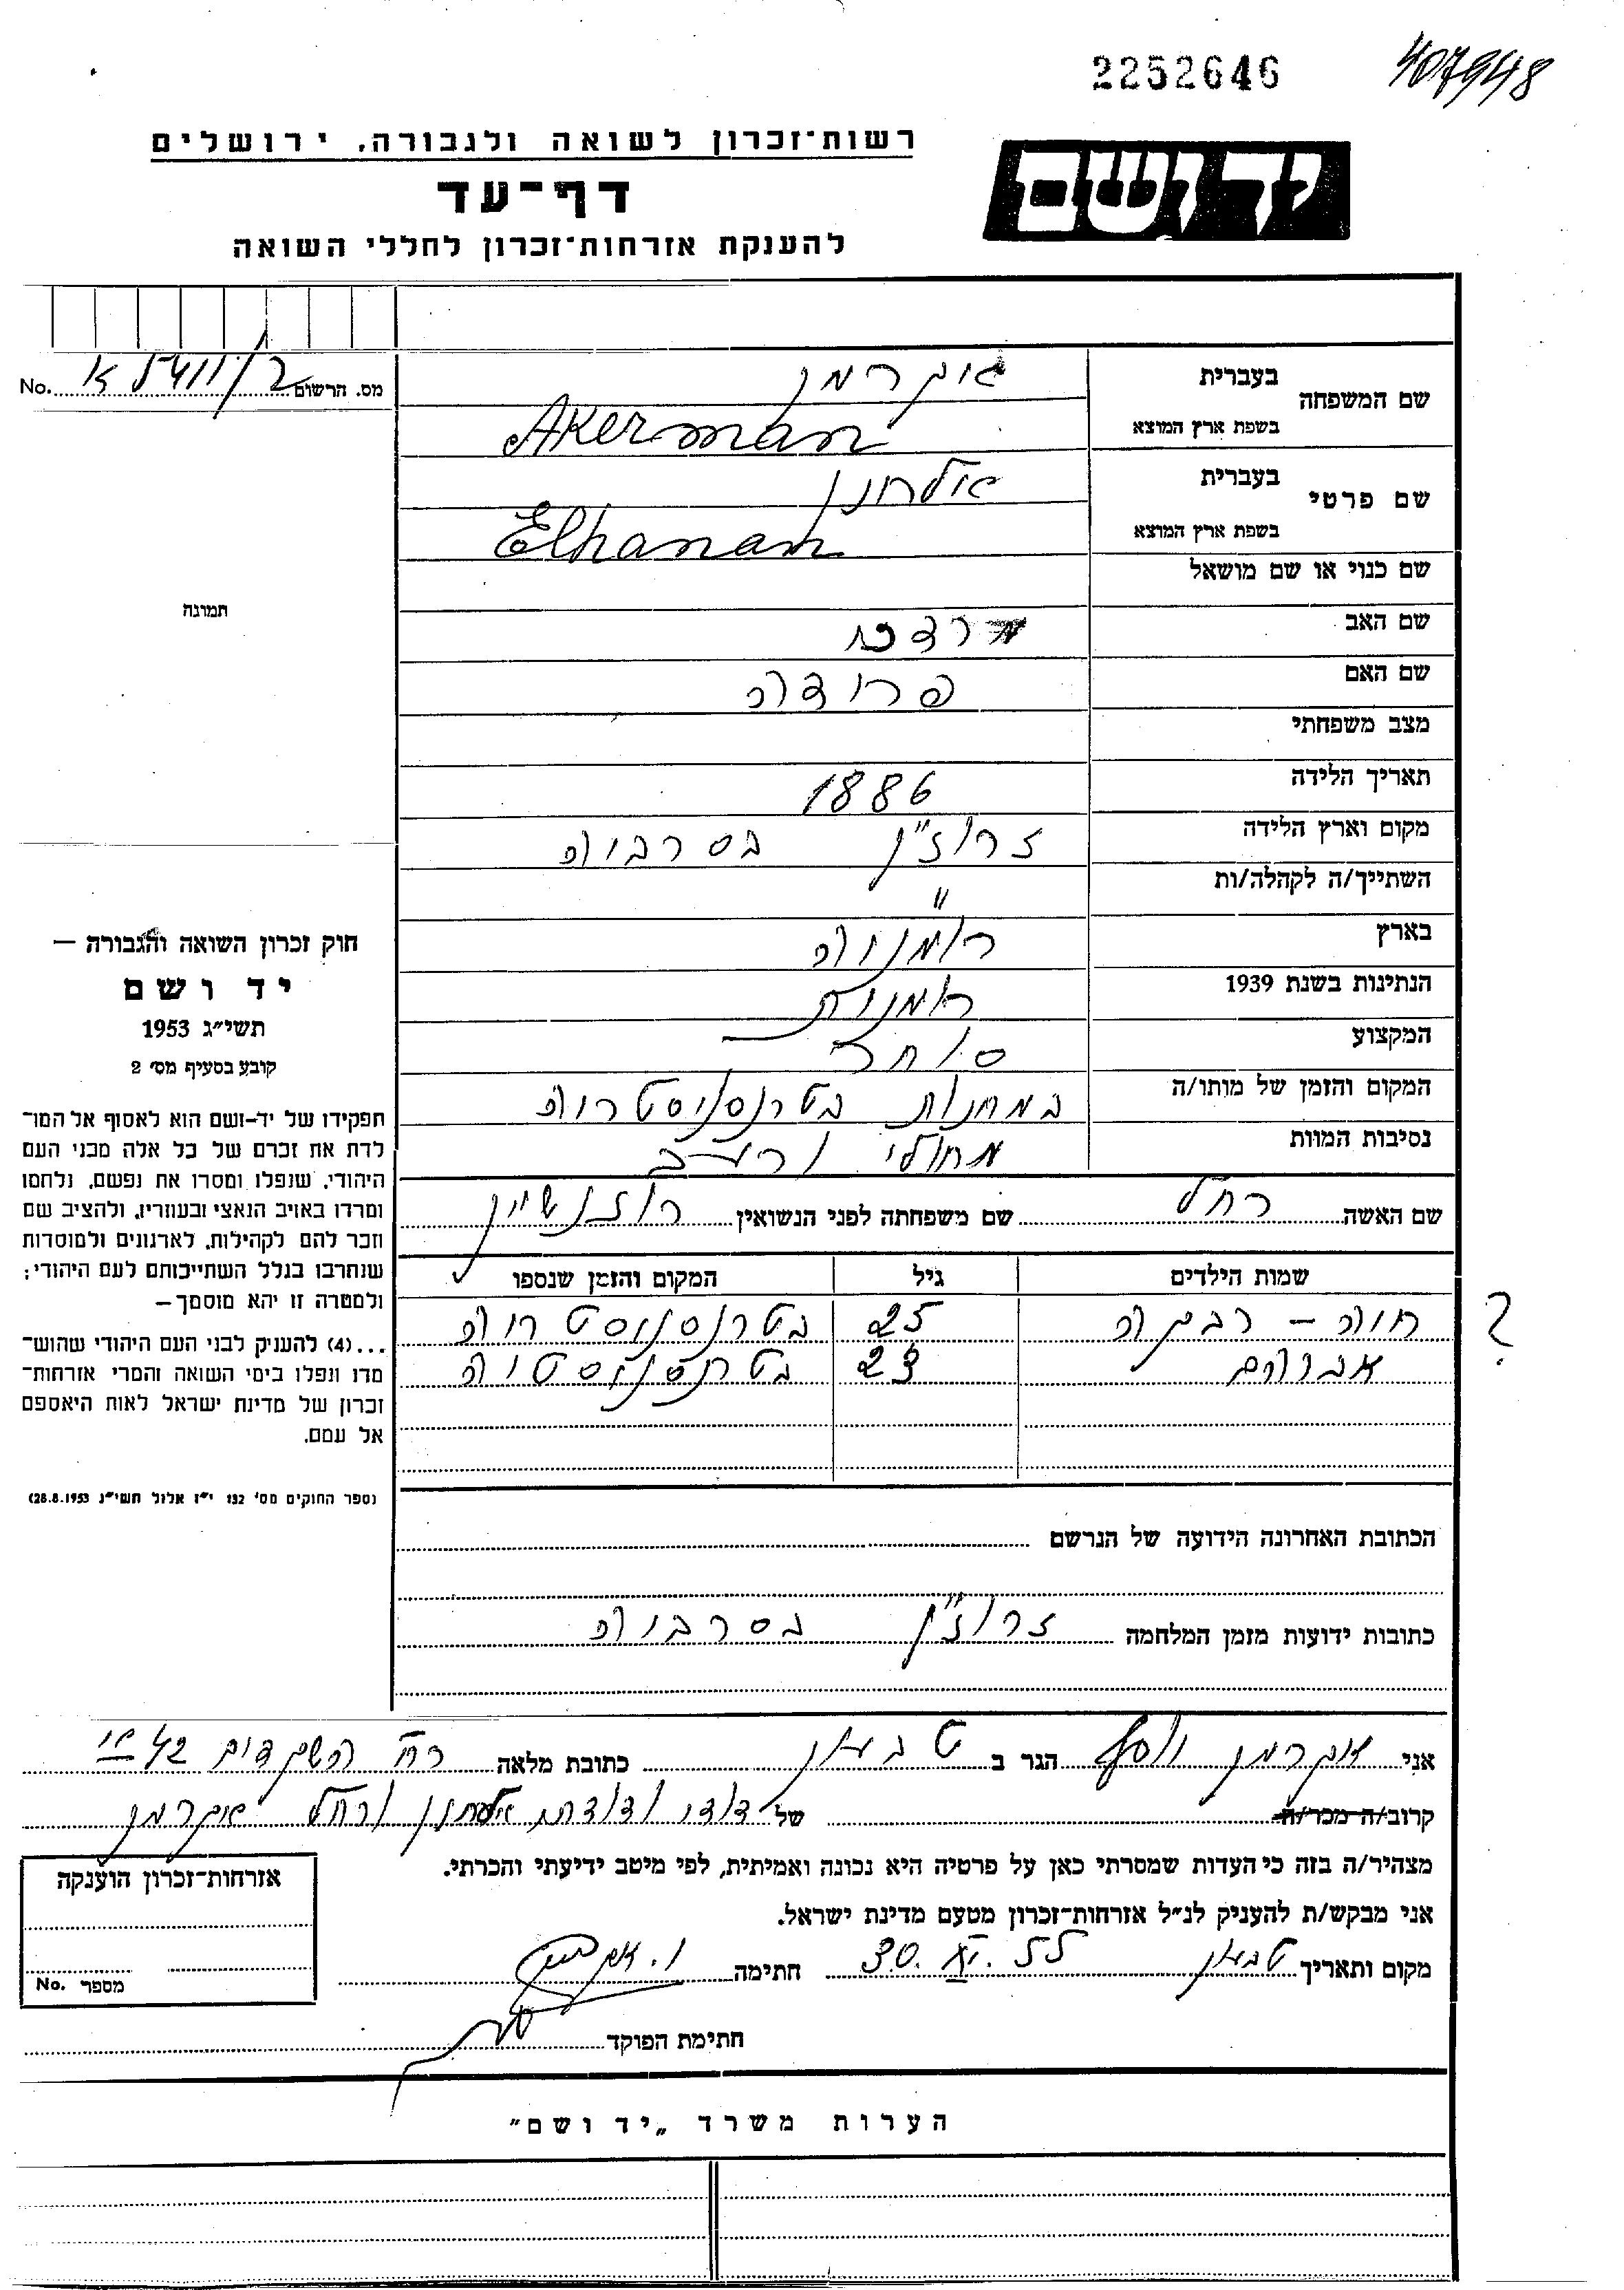 2252646 407948
רשות־זכרון לשואה ולגבורה, ירושלים
יד ושם
דף־עד
להענקת אזרחות־זכרון לחללי השואה
מס. הרשום No.
שם המשפחה בעברית אקרמן
בשפת ארץ המוצא Akerman
שם פרטי בעברית אלחנן
בשפת ארץ המוצא Elhanan
שם כנוי או שם מושאל
שם האב מרדכי
שם האם פרידה
מצב משפחתי
תאריך הלידה 1886
מקום וארץ הלידה זרוז"ן בסרביה
השתייך/ה לקהלה/ות "
בארץ רומניה
הנתינות בשנת 1939 רומנית
המקצוע סוחר
המקום והזמן של מותו/ה במחנות בטרנסניסטריה
נסיבות המוות מחולי ורעב
שם האשה רחל שם משפחתה לפני הנשואין רוזנשיין
שמות הילדים גיל המקום והזמן שנספו
חיה - רבקה 25 בטרנסניסטריה
אברהם 23 בטרנסניסטיה
?
תמונה
חוק זכרון השואה והגבורה —
יד ושם
תשי״ג 1953
קובע בסעיף מס׳ 2
תפקידו של יד-ושם הוא לאסוף אל המו־
לדת את זכרם של כל אלה מבני העם
היהודי, שנפלו ומסרו את נפשם, נלחמו
ומרדו באויב הנאצי ובעוזריו, ולהציב שם
וזכר להם לקהילות, לארגונים ולמוסדות
שנחרבו בגלל השתייכותם לעם היהודי;
ולמטרה זו יהא מוסמך—
...(4) להעניק לבני העם היהודי שהוש־
מדו ונפלו בימי השואה והמרי אזרחות־
זכרון של מדינת ישראל לאות היאספם
אל עמם.
(ספר החוקים מס׳ 132 י״ז אלול תשי״ג 28.8.1953)
הכתובת האחרונה הידועה של הנרשם
כתובות ידועות מזמן המלחמה זרוז"ן בסרביה
אני אקרמן יוסף הגר ב טבעון כתובת מלאה רח' השקדים 42
קרוב/ה מכר/ה של דודי ודודתי אלחנן ורחל אקרמן
מצהיר/ה בזה כי העדות שמסרתי כאן על פרטיה היא נכונה ואמיתית, לפי מיטב ידיעתי והכרתי.
אני מבקש/ת להעניק לנ״ל אזרחות־זכרון מטעם מדינת ישראל.
מקום ותאריך טבעון 30. XI. 55 חתימה י. אקרמן
חתימת הפוקד
אזרחות־זכרון הוענקה
מספר No.
הערות משרד „יד ושם״